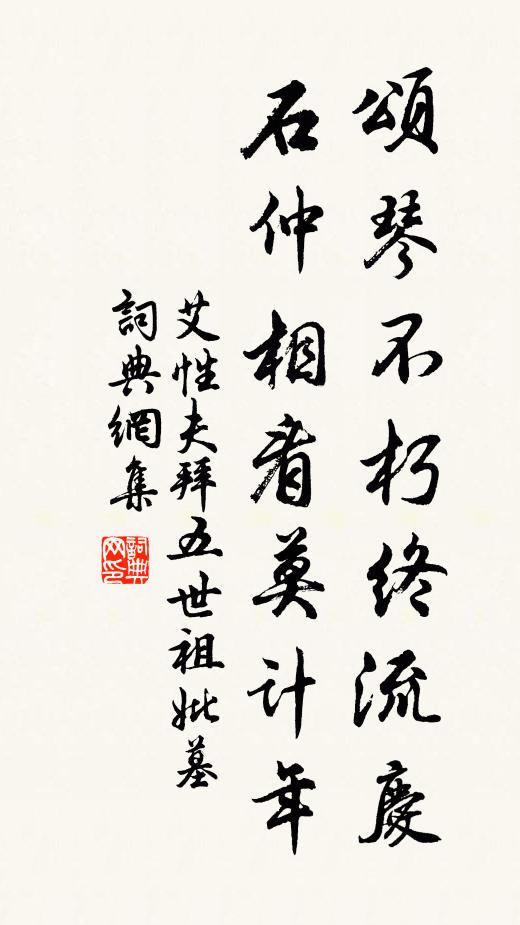 頌琴不朽終流慶
石仲相看莫計年
艾性夫拜五世祖妣墓
詞典網集
詞典網印